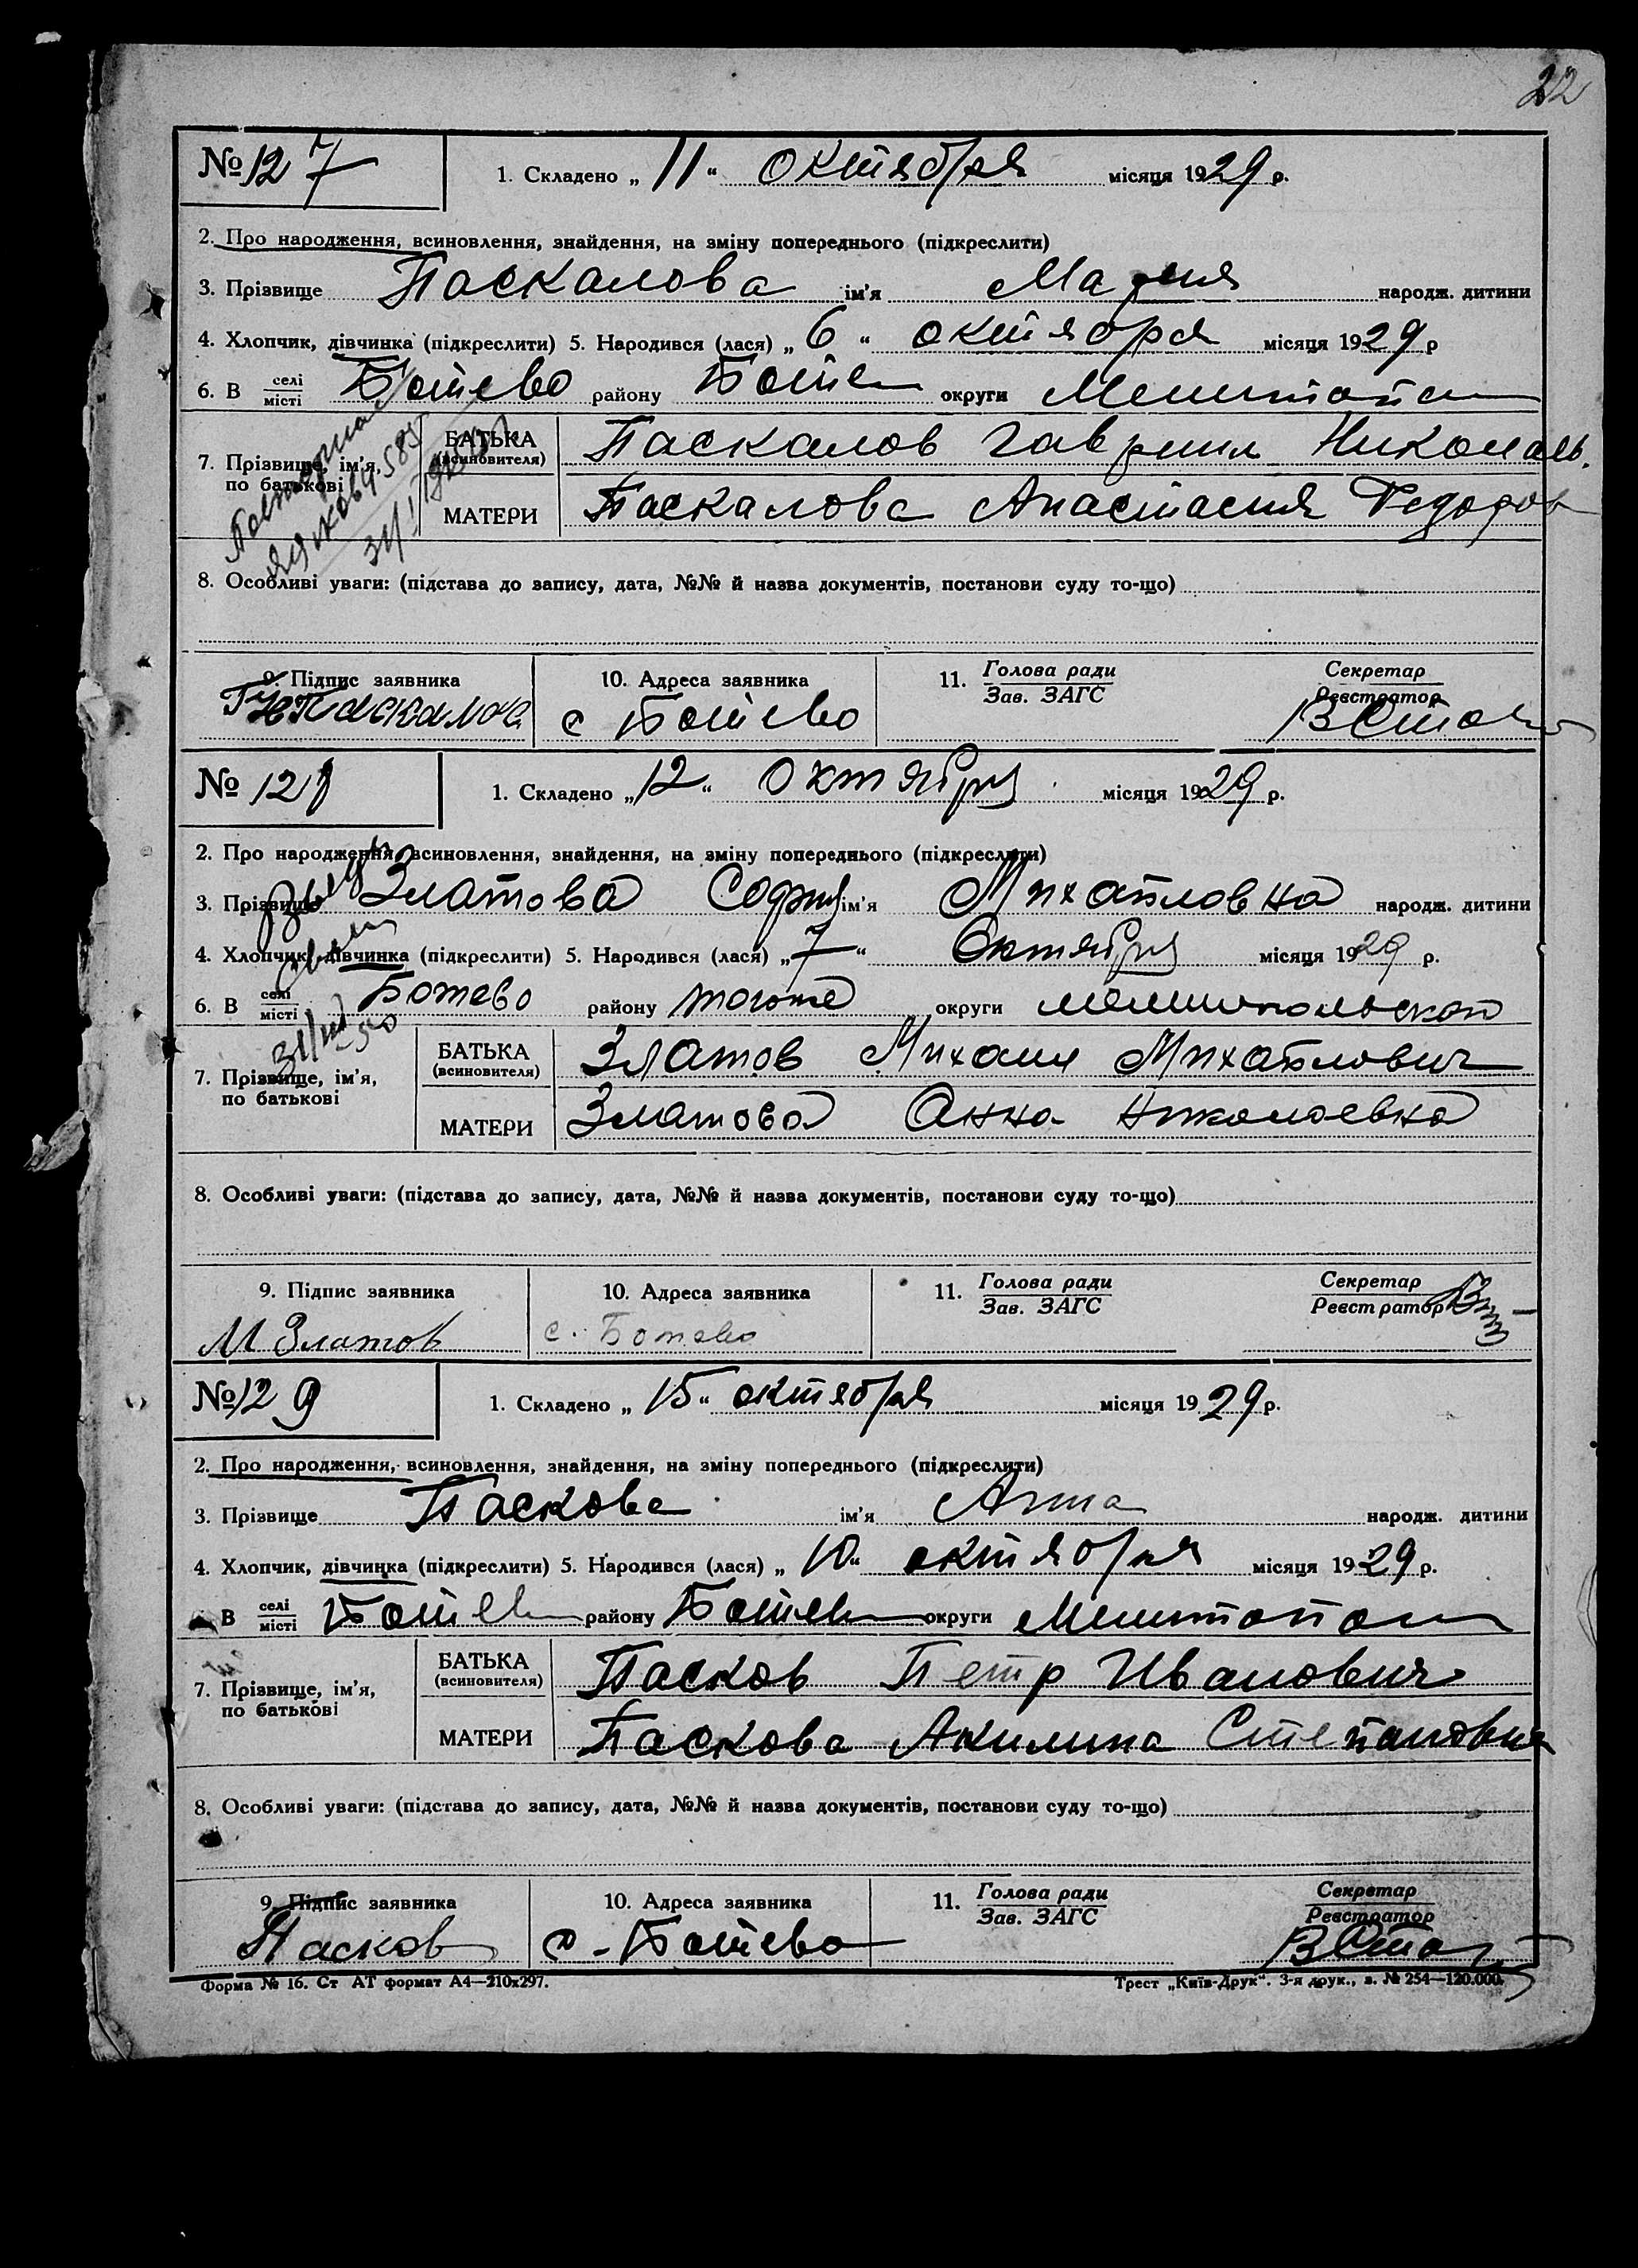 22
№ 127 1. Складено „11“ октября місяця 1929 р.
2. Про народження, всиновлення, знайдення, на зміну попереднього (підкреслити)
3. Прізвище Паскалова ім'я Мария народж. дитини
4. Хлопчик, дівчинка (підкреслити) 5. Народився (лася) „6“ октября місяця 1929 р
6. В селі місті Ботево району Ботев округи Мелитопол
7. Прізвище, ім'я, по батькові
БАТЬКА (всиновителя) Паскалов Гавриил Николаев.
МАТЕРИ Паскалова Анастасия Федоров
8. Особливі уваги: (підстава до запису, дата, №№ й назва документів, постанови суду то-що)
9. Підпис заявника 10. Адреса заявника 11. Голова ради Зав. ЗАГС Секретар Реєстратор
Паскалов с Ботево
№ 128 1. Складено „12“ Октября місяця 1929 р.
2. Про народження, всиновлення, знайдення, на зміну попереднього (підкреслити)
3. Прізвище Златова София ім'я Михайловна народж. дитини
4. Хлопчик, дівчинка (підкреслити) 5. Народився (лася) „7“ Октября місяця 1929 р.
6. В селі місті Ботево району тогоже округи
7. Прізвище, ім'я, по батькові
БАТЬКА (всиновителя) Златов Михаил Михайлович
МАТЕРИ Златова Анна Николаевна
8. Особливі уваги: (підстава до запису, дата, №№ й назва документів, постанови суду то-що)
9. Підпис заявника 10. Адреса заявника 11. Голова ради Зав. ЗАГС Секретар Реєстратор
М Златов с. Ботево
№ 129 1. Складено „15“ октября місяця 1929 р.
2. Про народження, всиновлення, знайдення, на зміну попереднього (підкреслити)
3. Прізвище Паскова ім'я Анна народж. дитини
4. Хлопчик, дівчинка (підкреслити) 5. Народився (лася) „10“ октября місяця 1929 р.
В селі місті Ботев району Ботев округи Мелитопол
7. Прізвище, ім'я, по батькові
БАТЬКА (всиновителя) Пасков Петр Иванович
МАТЕРИ Паскова Акилина Степановна
8. Особливі уваги: (підстава до запису, дата, №№ й назва документів, постанови суду то-що)
9. Підпис заявника 10. Адреса заявника 11. Голова ради Зав. ЗАГС Секретар Реєстратор
Пасков с. Ботево
Форма № 16. Ст АТ формат А4—210х297. Трест „Київ-Друк“. 3-я друк., з. № 254—120.000.